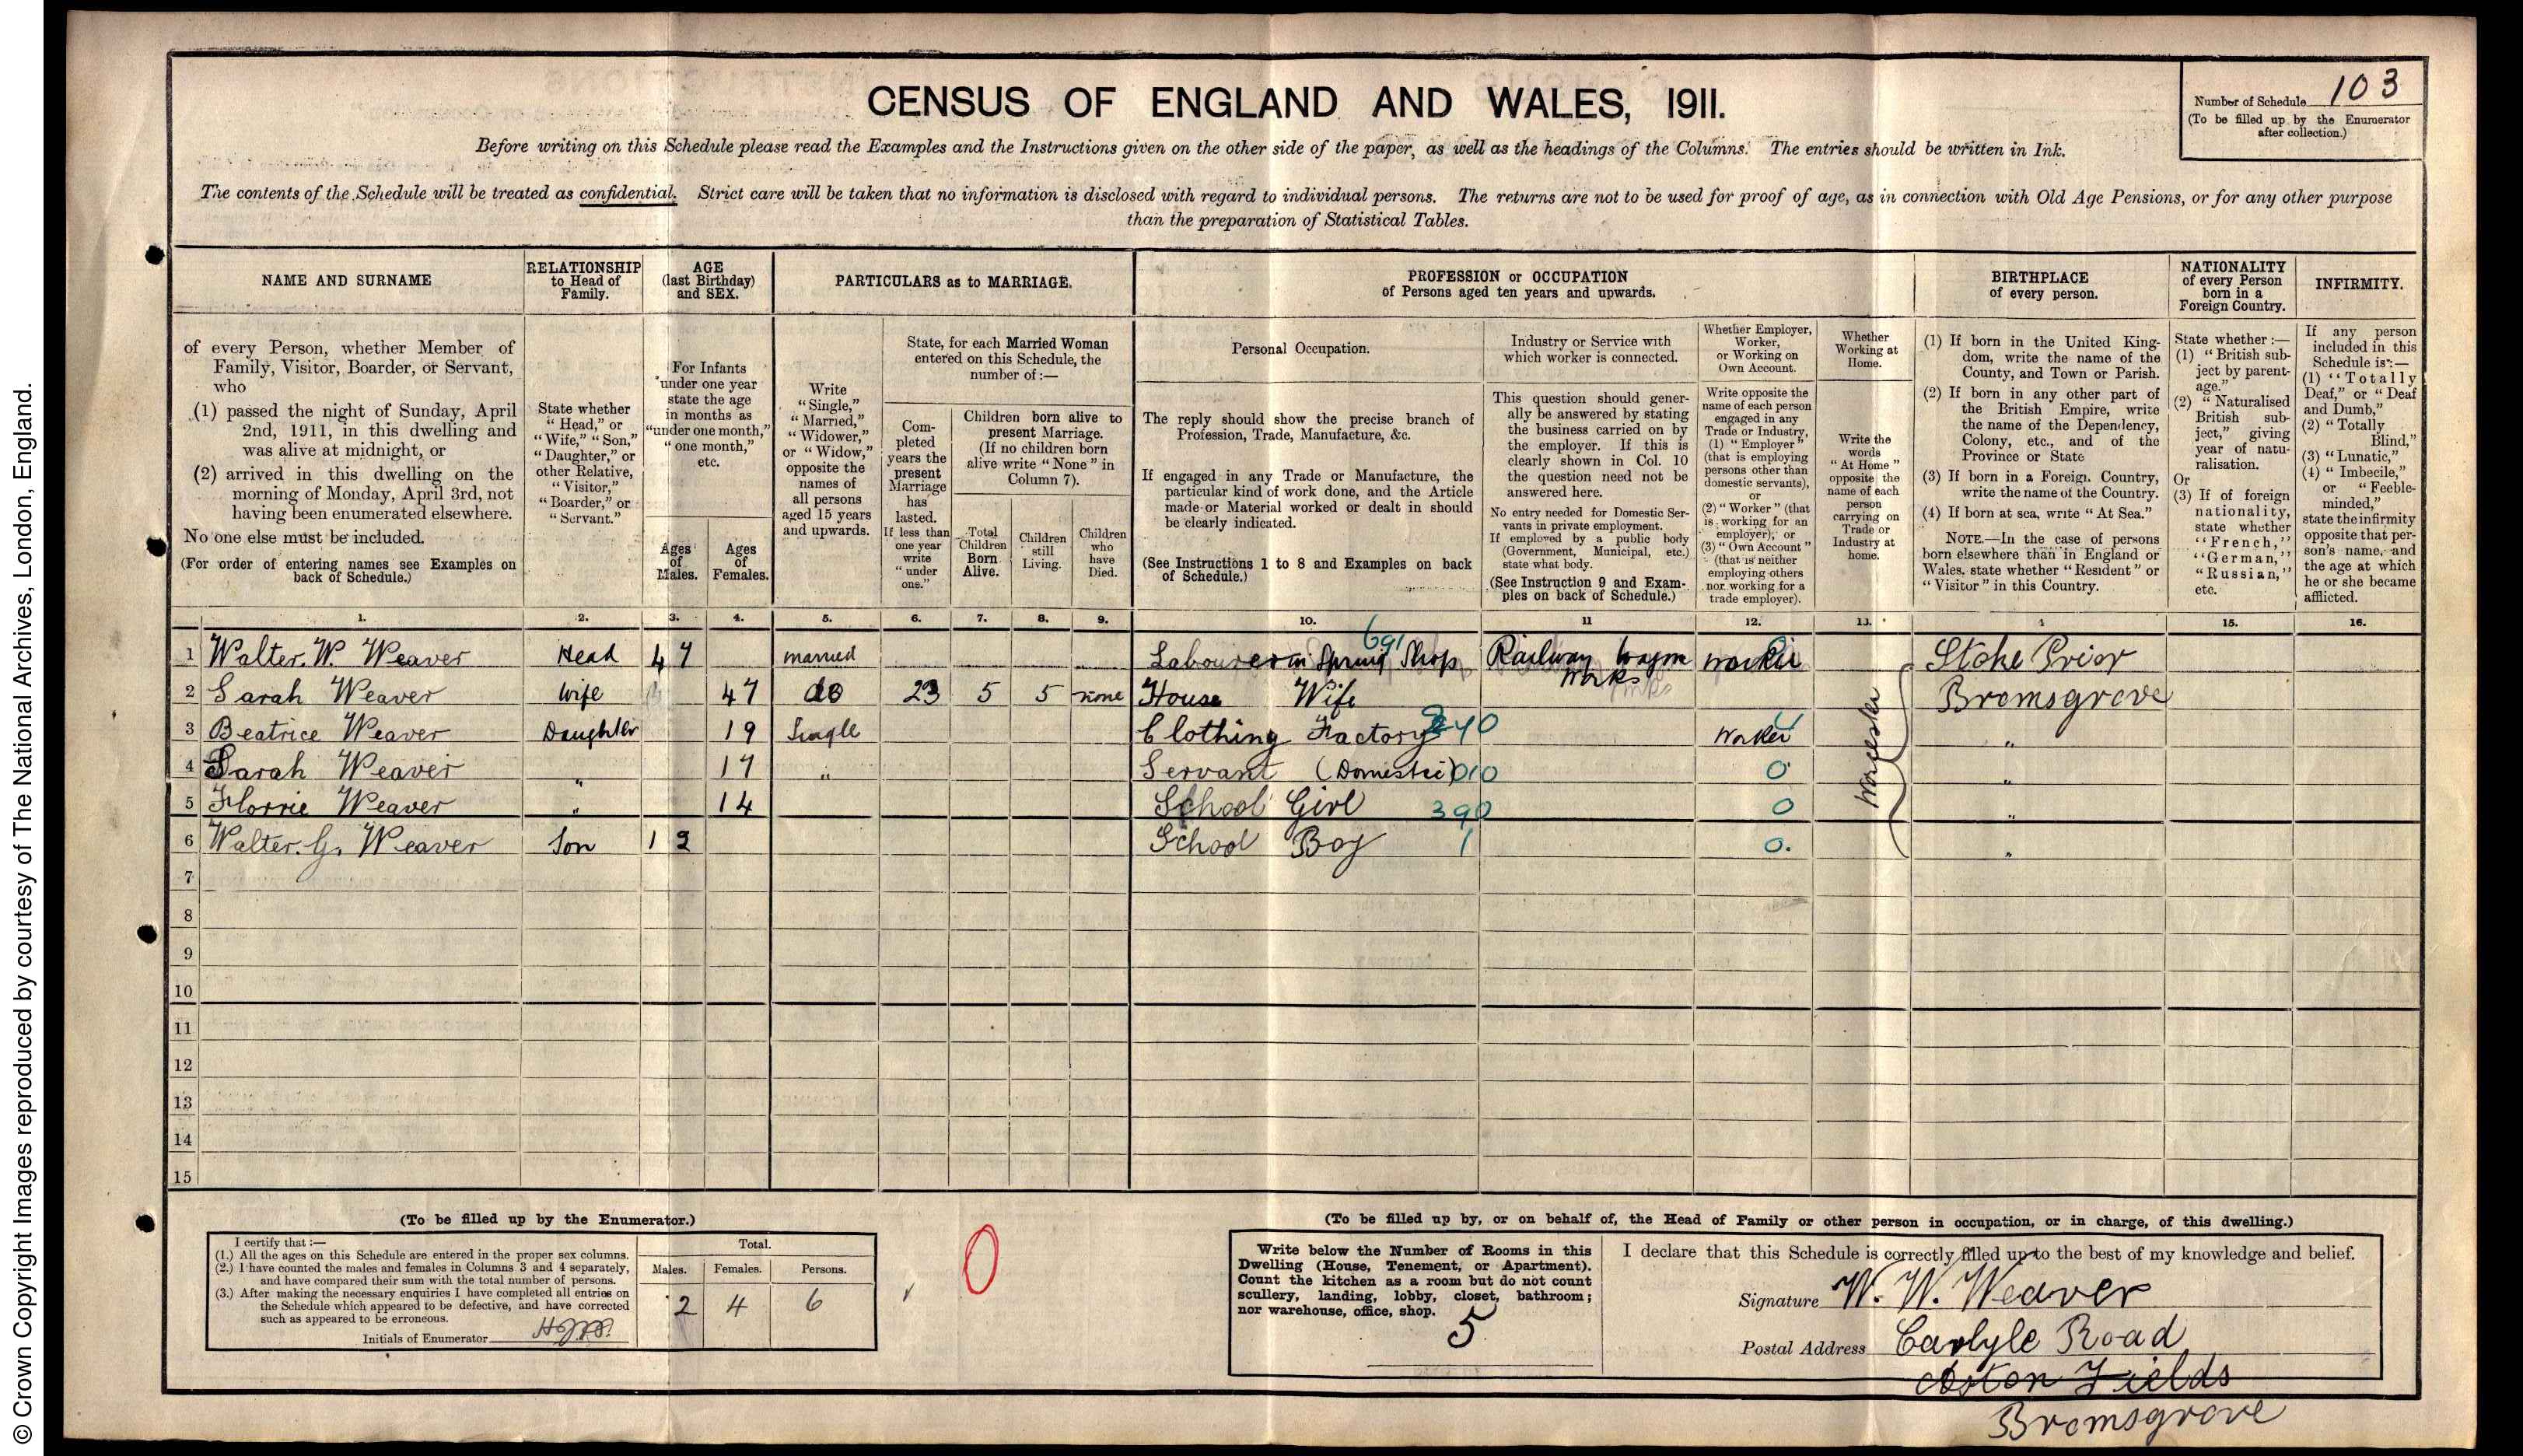 © Crown Copyright Images reproduced by courtesy of The National Archives, London, England.
CENSUS OF ENGLAND AND WALES, 1911.
Number of Schedule 103
(To be filled up by the Enumerator
after collection.)
Before writing on this Schedule please read the Examples and the Instructions given on the other side of the paper, as well as the headings of the Columns. The entries should be written in Ink.
The contents of the Schedule will be treated as confidential. Strict care will be taken that no information is disclosed with regard to individual persons. The returns are not to be used for proof of age, as in connection with Old Age Pensions, or for any other purpose
than the preparation of Statistical Tables.
NAME AND SURNAME
of every Person, whether Member of
Family, Visitor, Boarder, or Servant,
who
(1) passed the night of Sunday, April
2nd, 1911, in this dwelling and
was alive at midnight, or
(2) arrived in this dwelling on the
morning of Monday, April 3rd, not
having been enumerated elsewhere.
No one else must be included.
(For order of entering names see Examples on
back of Schedule.)
RELATIONSHIP
to Head of
Family.
State whether
"Head," or
"Wife," "Son,"
"Daughter," or
other Relative,
"Visitor,"
"Boarder," or
"Servant."
AGE
(last Birthday)
and SEX.
For Infants
under one year
state the age
in months as
"under one month,"
"one month,"
etc.
Ages
of
Males.
Ages
of
Females.
PARTICULARS as to MARRIAGE.
Write
"Single,"
"Married,"
"Widower,"
or "Widow,"
opposite the
names of
all persons
aged 15 years
and upwards.
State, for each Married Woman
entered on this Schedule, the
number of:—
Com-
pleted
years the
present
Marriage
has
lasted.
If less than
one year
write
"under
one."
Children born alive to
present Marriage.
(If no children born
alive write "None" in
Column 7).
Total
Children
Born
Alive.
Children
still
Living.
Children
who
have
Died.
PROFESSION or OCCUPATION
of Persons aged ten years and upwards.
Personal Occupation.
The reply should show the precise branch of
Profession, Trade, Manufacture, &c.
If engaged in any Trade or Manufacture, the
particular kind of work done, and the Article
made or Material worked or dealt in should
be clearly indicated.
(See Instructions 1 to 8 and Examples on back
of Schedule.)
Industry or Service with
which worker is connected.
This question should gener-
ally be answered by stating
the business carried on by
the employer. If this is
clearly shown in Col. 10
the question need not be
answered here.
No entry needed for Domestic Ser-
vants in private employment.
If employed by a public body
(Government, Municipal, etc.)
state what body.
(See Instruction 9 and Exam-
ples on back of Schedule.)
Whether Employer,
Worker,
or Working on
Own Account.
Write opposite the
name of each person
engaged in any
Trade or Industry,
(1) "Employer"
(that is employing
persons other than
domestic servants),
or
(2) "Worker" (that
is working for an
employer), or
(3) "Own Account"
(that is neither
employing others
nor working for a
trade employer).
Whether
Working at
Home.
Write the
words
"At Home"
opposite the
name of each
person
carrying on
Trade or
Industry at
home.
BIRTHPLACE
of every person.
(1) If born in the United King-
dom, write the name of the
County, and Town or Parish.
(2) If born in any other part of
the British Empire, write
the name of the Dependency,
Colony, etc., and of the
Province or State
(3) If born in a Foreign Country,
write the name of the Country.
(4) If born at sea, write "At Sea."
NOTE.—In the case of persons
born elsewhere than in England or
Wales, state whether "Resident" or
"Visitor" in this Country.
NATIONALITY
of every Person
born in a
Foreign Country.
State whether:—
(1) "British sub-
ject by parent-
age."
(2) "Naturalised
British sub-
ject," giving
year of natu-
ralisation.
Or
(3) If of foreign
nationality,
state whether
"French,"
"German,"
"Russian,"
etc.
INFIRMITY.
If any person
included in this
Schedule is:—
(1) "Totally
Deaf," or "Deaf
and Dumb,"
(2) "Totally
Blind,"
(3) "Lunatic,"
(4) "Imbecile,"
or "Feeble-
minded,"
state the infirmity
opposite that per-
son's name, and
the age at which
he or she became
afflicted.
1. 2. 3. 4. 5. 6. 7. 8. 9. 10. 11 12. 13. 15. 16.
1 Walter. W. Weaver Head 47 married Labourer in Spring Shop 691 Railway Wagon Works worker Stoke Prior
2 Sarah Weaver Wife 47 do 23 5 5 none House Wife Bromsgrove
3 Beatrice Weaver Daughter 19 Single Clothing Factory 240 Worker "
4 Sarah Weaver " 17 " Servant (Domestic) 010 0 "
5 Florrie Weaver " 14 School Girl 390 0 "
6 Walter. G. Weaver Son 12 School Boy 1 0. "
Worcester
7
8
9
10
11
12
13
14
15
(To be filled up by the Enumerator.)
I certify that:—
(1.) All the ages on this Schedule are entered in the proper sex columns.
(2.) I have counted the males and females in Columns 3 and 4 separately,
and have compared their sum with the total number of persons.
(3.) After making the necessary enquiries I have completed all entries on
the Schedule which appeared to be defective, and have corrected
such as appeared to be erroneous.
Initials of Enumerator
Total.
Males. Females. Persons.
2 4 6
0
(To be filled up by, or on behalf of, the Head of Family or other person in occupation, or in charge, of this dwelling.)
Write below the Number of Rooms in this
Dwelling (House, Tenement, or Apartment).
Count the kitchen as a room but do not count
scullery, landing, lobby, closet, bathroom;
nor warehouse, office, shop.
5
I declare that this Schedule is correctly filled up to the best of my knowledge and belief.
Signature W. W. Weaver
Postal Address Carlyle Road
Aston Fields
Bromsgrove